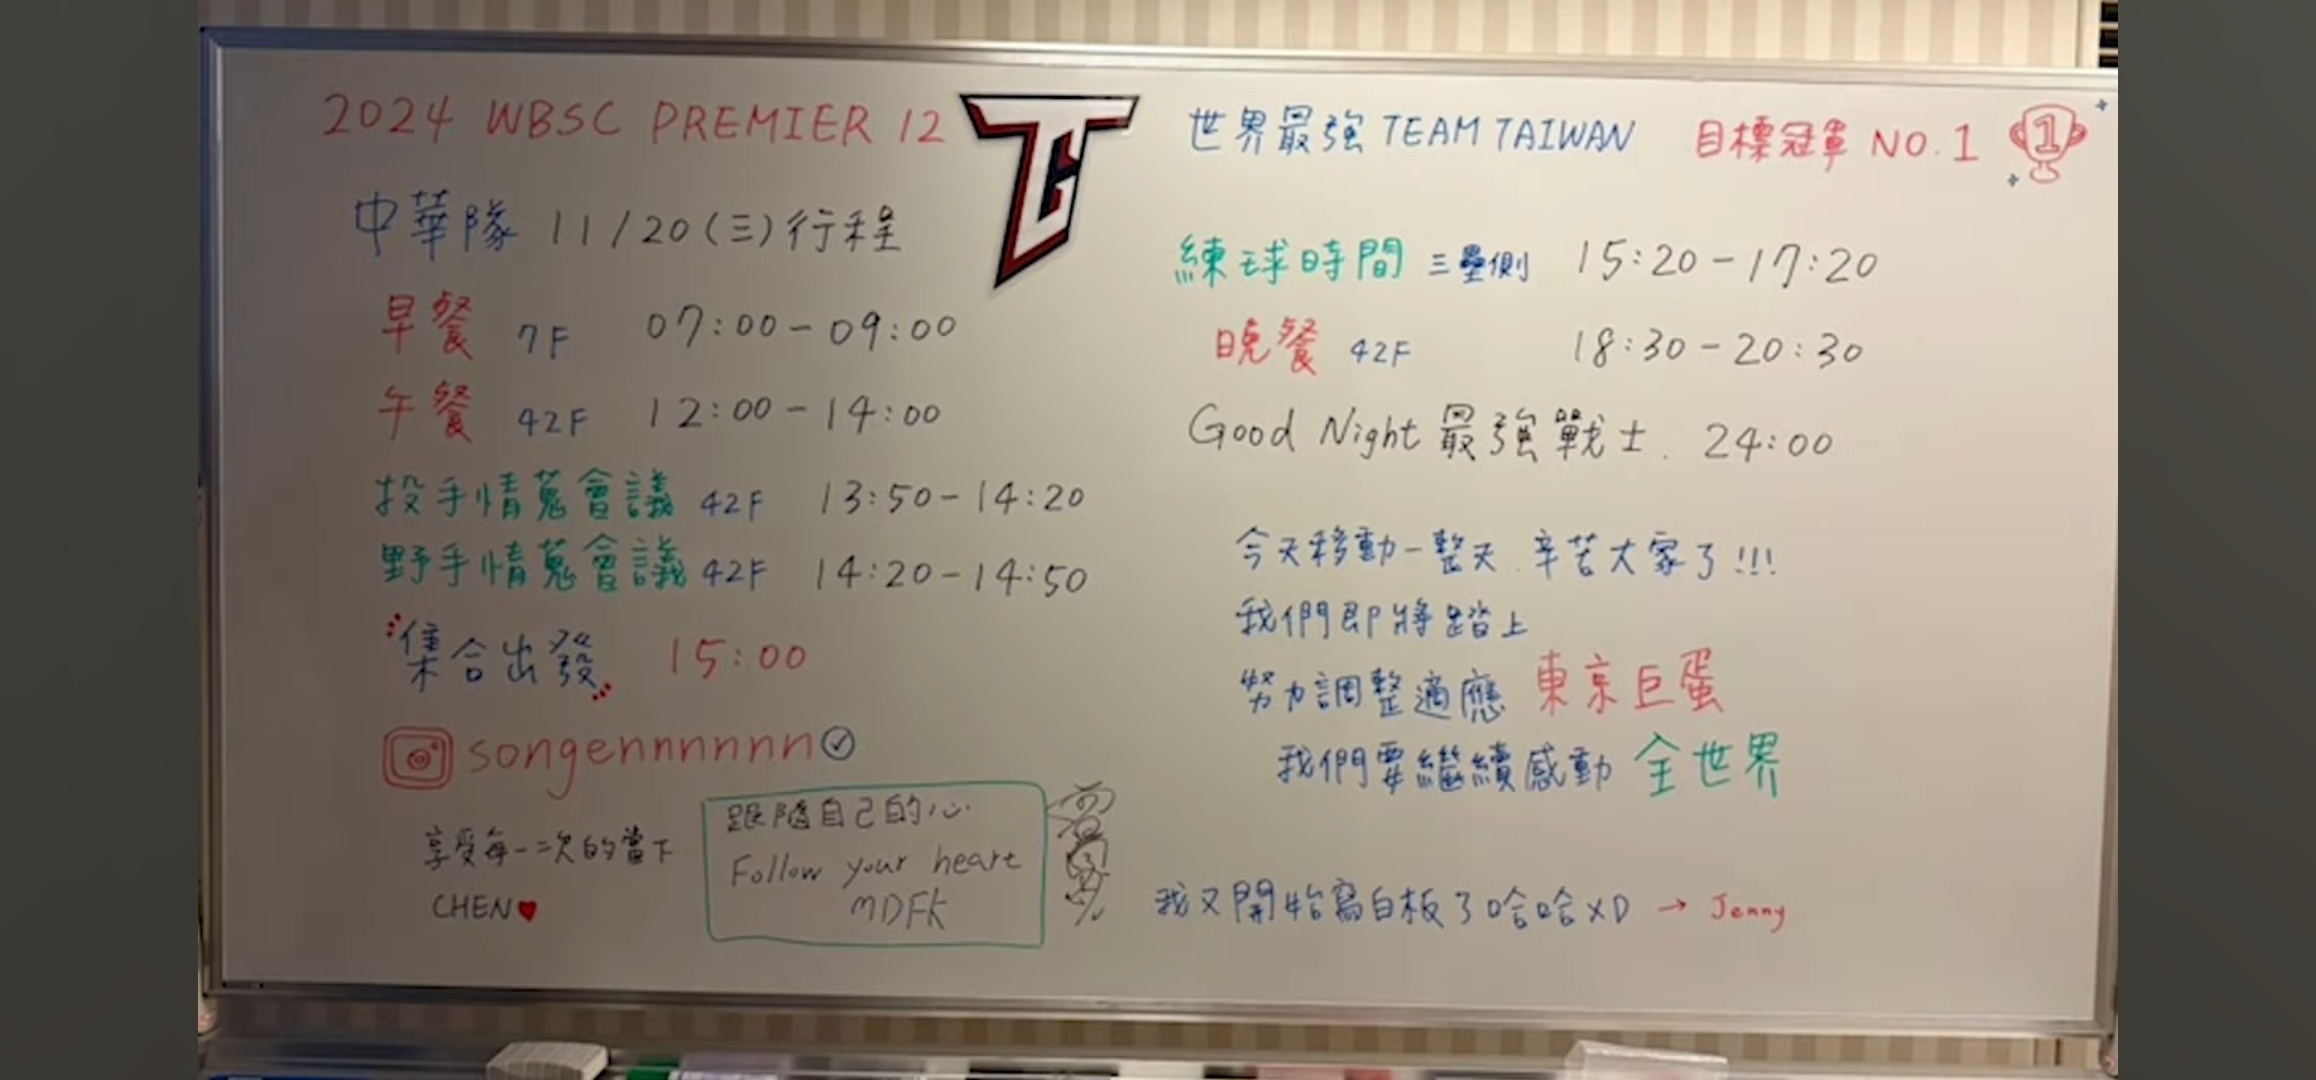 2024 WBSC PREMIER 12
中華隊 11/20(三)行程
早餐 7F 07:00-09:00
午餐 42F 12:00-14:00
投手情蒐會議 42F 13:50-14:20
野手情蒐會議 42F 14:20-14:50
集合出發 15:00
songennnnnn
享受每一次的當下
CHEN♥
跟隨自己的心
Follow your heart
MDFK
世界最強 TEAM TAIWAN 目標冠軍 NO.1
1
練球時間 三壘側 15:20-17:20
晚餐 42F 18:30-20:30
Good Night 最強戰士. 24:00
今天移動一整天.辛苦大家了!!!
我們即將踏上
努力調整適應 東京巨蛋
我們要繼續感動 全世界
我又開始寫白板了哈哈XD → Jenny